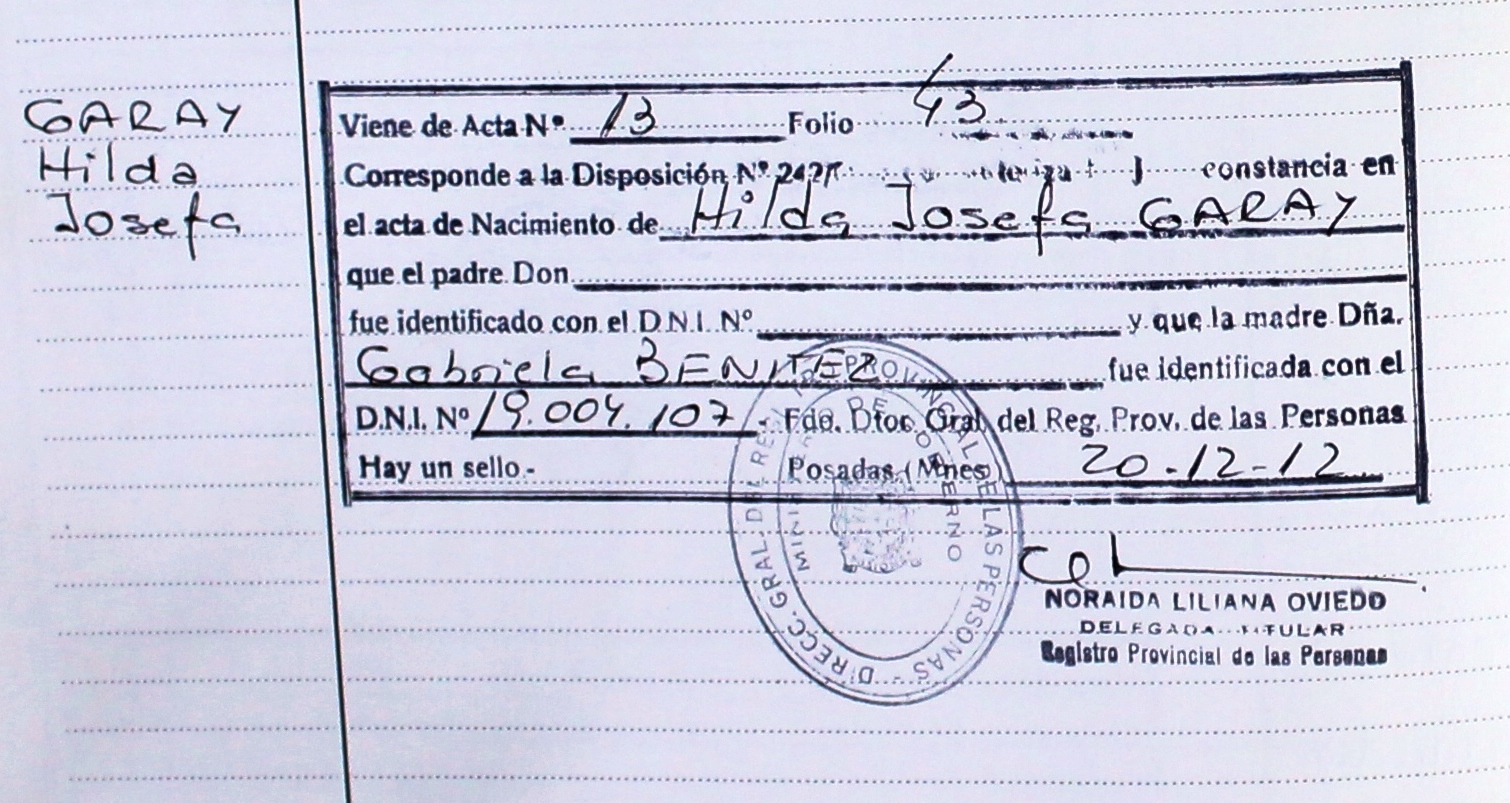 GARAY
Hilda
Josefa
Viene de Acta Nº 13 Folio 43
Corresponde a la Disposición Nº 242/ constancia en
el acta de Nacimiento de Hilda Josefa GARAY
que el padre Don
fue identificado con el D.N.I. Nº y que la madre Dña.
Gabriela BENITEZ fue identificada con el
D.N.I. Nº 19.004.107 - Fdo. Dtor. Gral. del Reg. Prov. de las Personas
Hay un sello.- Posadas (Mnes) 20-12-12
DIRECC. GRAL. DEL REG. PROVINCIAL DE LAS PERSONAS -
MINISTERIO DE GOBIERNO
NORAIDA LILIANA OVIEDO
DELEGADA TITULAR
Registro Provincial de las Personas